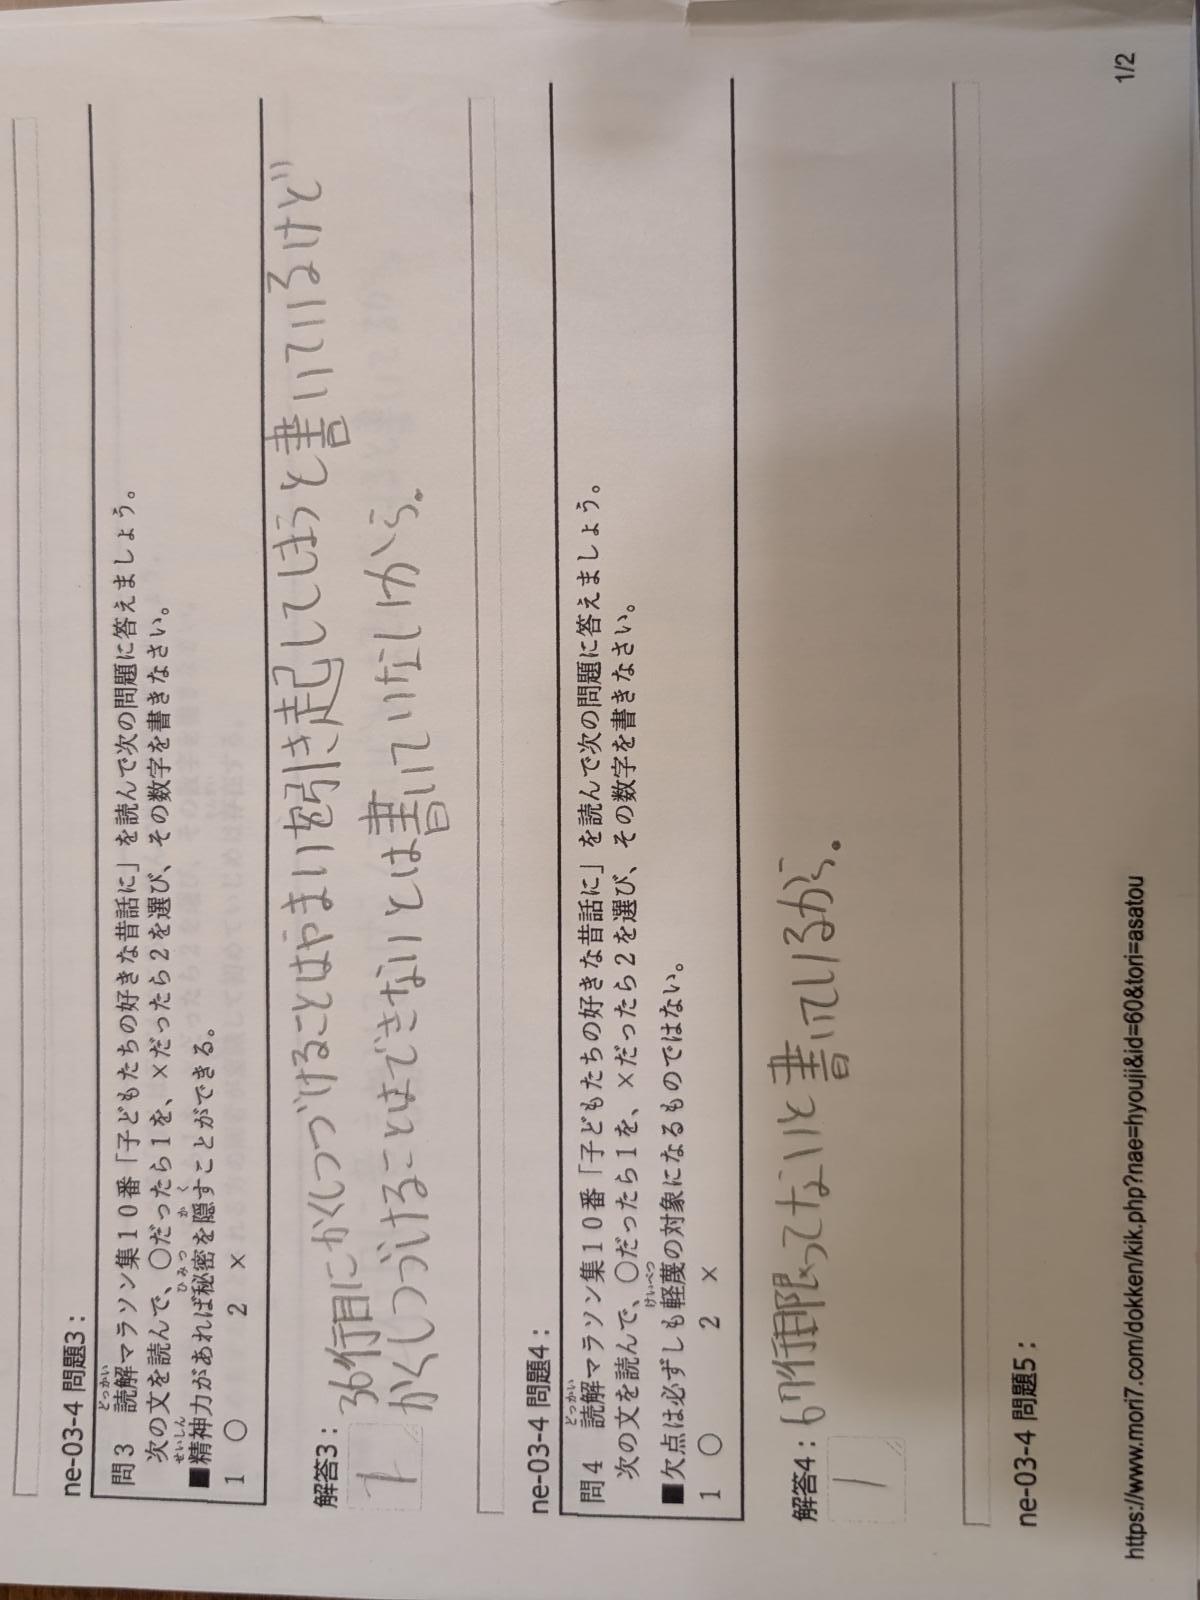 ne-03-4 問題3：
問3　読解マラソン集10番「子どもたちの好きな昔話に」を読んで次の問題に答えましょう。
どっかい
次の文を読んで、〇だったら1を、×だったら2を選び、その数字を書きなさい。
■精神力があれば秘密を隠すことができる。
せいしん　ひみつ　かく
1　〇　　2　×
解答3：
36行目にかくしつづけることはやまいを引き起してしまうと書いているけど
かくしつづけることはできないとは書いていないから。
1
ne-03-4 問題4：
問4　読解マラソン集10番「子どもたちの好きな昔話に」を読んで次の問題に答えましょう。
どっかい
次の文を読んで、〇だったら1を、×だったら2を選び、その数字を書きなさい。
■欠点は必ずしも軽蔑の対象になるものではない。
けいべつ
1　〇　　2　×
解答4：
67行目限ってないと書いているから。
1
ne-03-4 問題5：
https://www.mori7.com/dokken/kik.php?nae=hyouji&id=60&tori=asatou
1/2